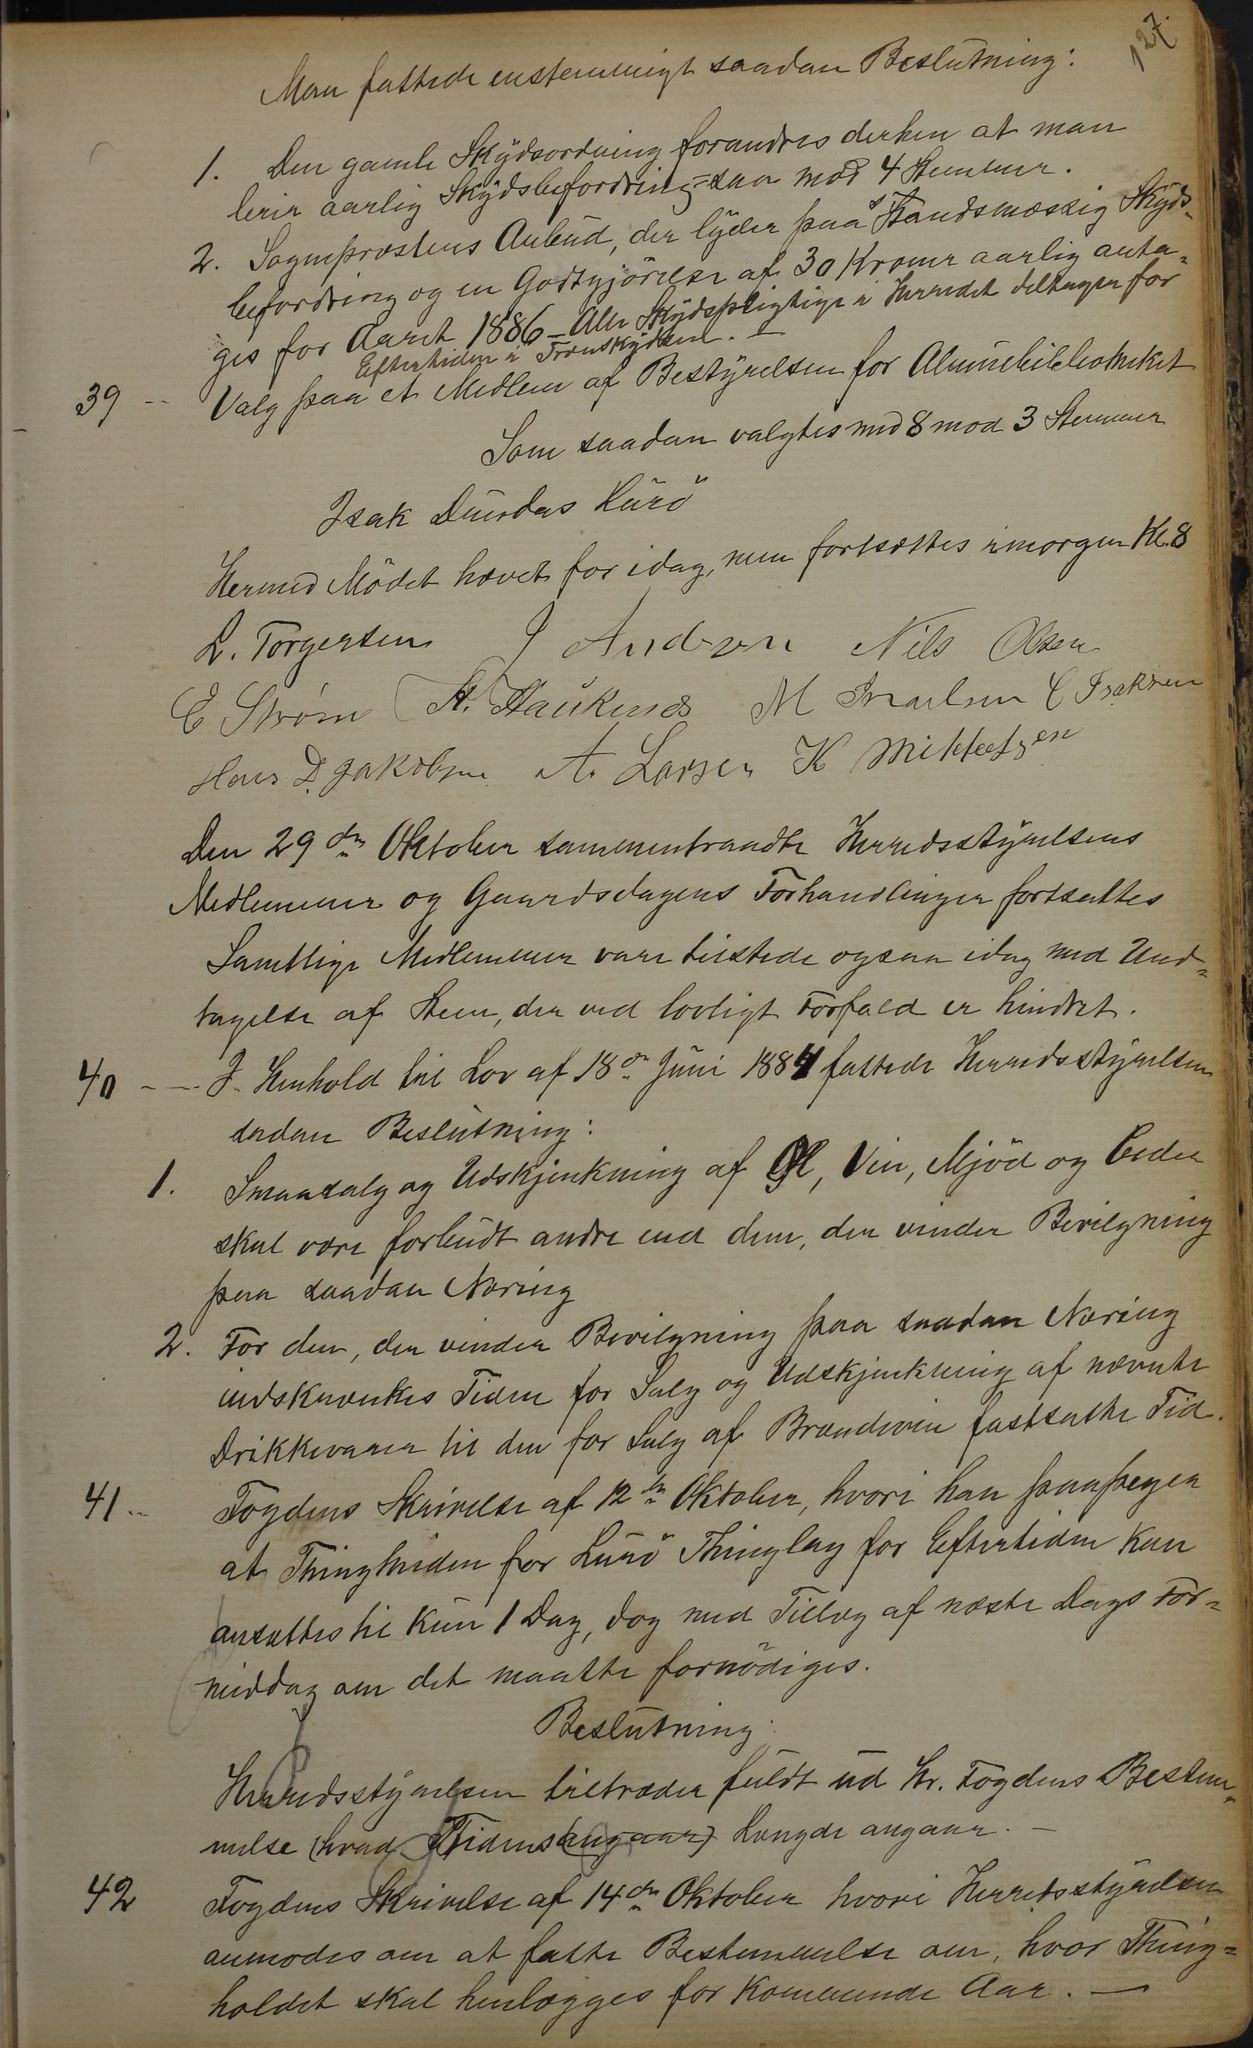 127.
Man fattede enstemmigt saadan Beslutning:
1. Den gamle Skydsordning forandres derhen at man
leier aarlig Skydsbefordring - saa mod 4 Stemmer.
2. Sogneprestens Anbud, der lyder paa Standsmæssig Skyds-
befordring og en Godtgjörelse af 30 Kroner aarlig anta-
ges for Aaret 1886 - Alle Skydspligtige i Herredet deltager for
Eftertiden i Transkydsen. -
39 -- Valg paa et Medlem af Bestyrelsen for Almuebibliotheket
Som saadan valgtes med 8 mod 3 Stemmer
Isak Dundas Lurö
Hermed Mödet hævet for idag, men fortsættes imorgen Kl. 8
L. Torgersen J Andsen Nils Olsen
E Strøm H. Haukenes M Israelsen C Isaksen
Hans D. Jakobsen A. Larsen K Mikkelsen
Den 29de Oktober sammentraadte Herredsstyrelsens
Medlemmer og Gaardsdagens Forhandlinger fortsattes
Samtlige Medlemmer vare tilstede ogsaa idag med Und-
tagelse af Steen, der ved lovligt Forfald er hindret.
40 -- I Henhold til Lov af 18de Juni 1884 fattede Herredsstyrelsen
sadan Beslutning:
1. Smaasalg og Udskjenkning af Øl, Vin, Mjöd og Ceder
skal være forbudt andre end dem, der vinder Bevilgning
paa saadan Næring
2. For dem, der vinder Bevilgning paa saadan Næring
indskrænkes Tiden for Salg og Udskjenkning af nævnte
Drikkevarer til den for Salg af Brændevin fastsatte Tid.
41 -- Fogdens Skrivelse af 12te Oktober, hvori han paapeger
at Thingtiden for Lurö Thinglag for Eftertiden kan
ansættes til kun 1 Dag, dog med Tillæg af næste Dags For-
middag om det maatte fornödiges.
Beslutning:
Herredsstyrelsen tiltræder fuldt ud Hr. Fogdens Bestem-
melse (hvad Tidens (angaar) Længde angaar. -
42 Fogdens Skrivelse af 14de Oktober hvori Herredsstyrelsen
anmodes om at fatte Bestemmelse om, hvor Thing-
holdet skal henlægges for kommende Aar. -